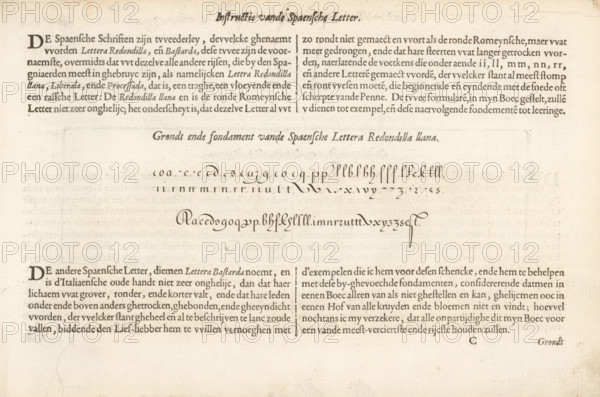 Instructie vande Spaensche Letter.
DE Spaensche Schriften zijn tvveederley, devvelcke ghenaemt
vvorden Lettera Redondilla, en Bastarda, dese tvvee zijn de voor-
naemste, overmidts dat vvt dezelve alle andere rijsen, die by den Spa-
gniaerden meest in ghebruyc zijn, als namelijcken Lettra Redondilla
llana, Liberala, ende Processada, dat is, een traghe, een vloeyende ende
een rassche Letter: De Redondilla llana en is de ronde Romeynsche
Letter niet zeer onghelijc; het onderscheyt is, dat dezelve Letter al vvt
zo rondt niet gemaect en vvort als de ronde Romeynsche, maer vvat
meer gedrongen, ende dat hare steerten vvat langer getrocken vvor-
den, naerlatende de voetkens die onder aende ii, ll, mm, nn, rr,
en andere Letteré gemaect vvordé, der vvelcker stant al meest stomp
en ront vvesen moet, die beginnende en eyndende met de snede oft
scherpte vande Penne. De tvvee formulaté, in mijn Boec gestelt, zullé
v dienen tot exempel, en dese naervolgende fondamenté tot leeringe.
Grondt ende fondament vande Spaensche Lettera Redondilla llana.
Aacedogoqpp.bhfklllll.imnrrutttvxyzzsest.
DE andere Spaensche Letter, diemen Lettera Bastarda noemt, en
is d'Italiaensche oude handt niet zeer onghelijc, dan dat haer
lichaem vvat grover, ronder, ende korter valt, ende dat hare leden
onder ende boven anders ghetrocken, ghebonden, ende gheeyndicht
vvorden, der vvelcker stant gheheel en al te beschrijven te lanc zoude
vallen, biddende den Lief-hebber hem te vvillen vernoeghen met
d'exempelen die ic hem voor desen schencke, ende hem te behelpen
met dese by-ghevoechde fondamenten, considererende datmen in
eenen Boec alleen van als niet ghestellen en kan, ghelijcmen ooc in
eenen Hof van alle kruyden ende bloemen niet en vindt; hoevvel
nochtans ic my verzekere, dat alle onpartijdighe dit mijn Boec voor
een vande meest-vercierste ende rijcste houden zullen.
C Grondt
PHOTO 12